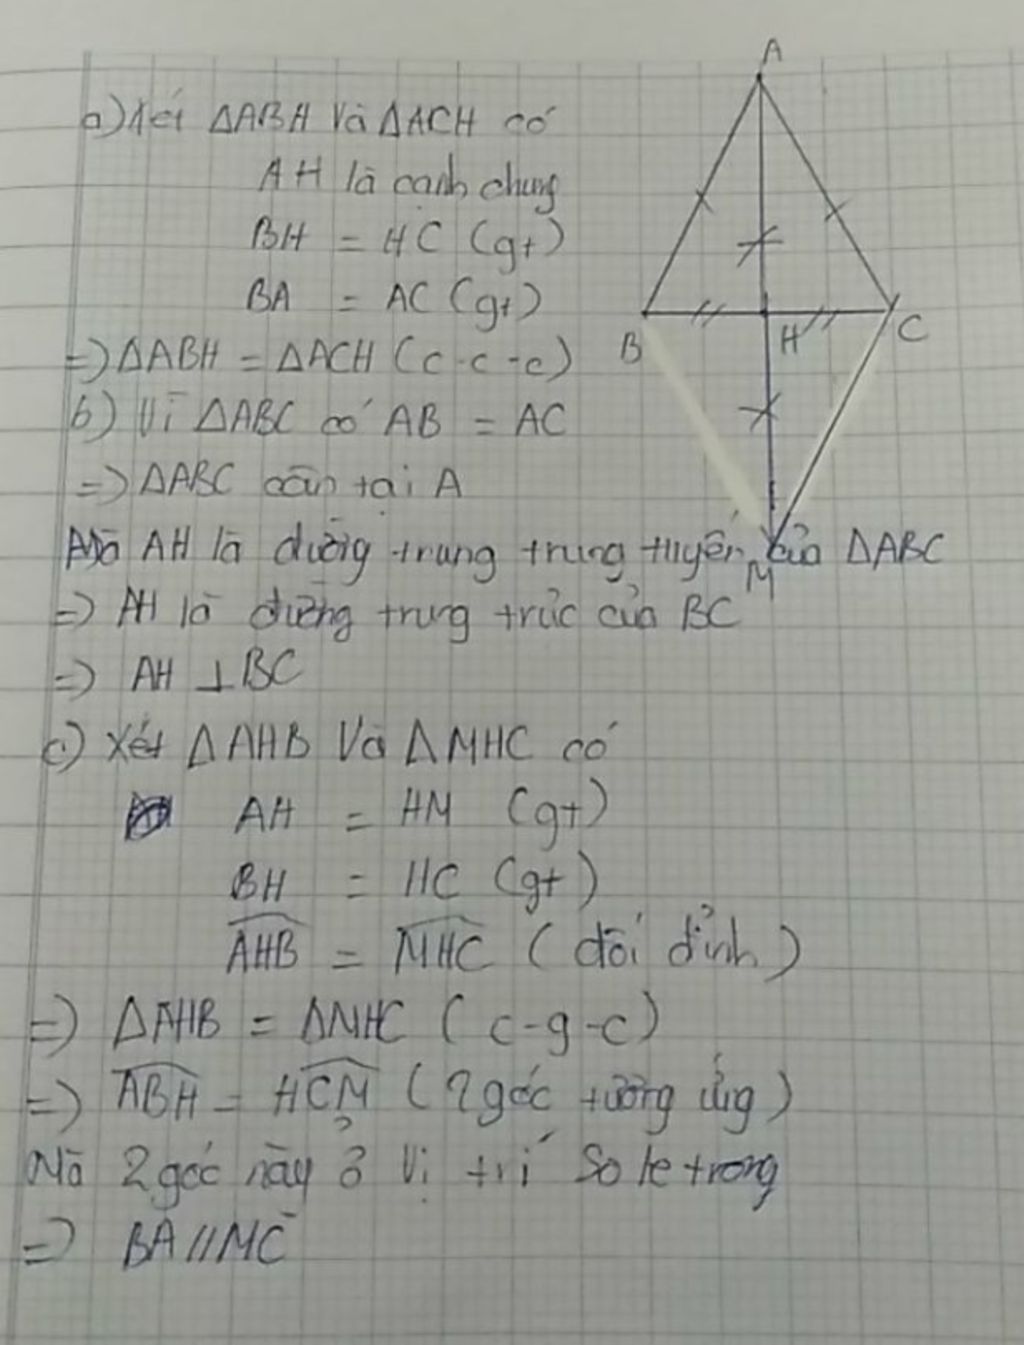 a) Xét ΔABH và ΔACH có
AH là cạnh chung
BH = HC (gt)
BA = AC (gt)
=> ΔABH = ΔACH (c-c-c)
b) Vì ΔABC có AB = AC
=> ΔABC cân tại A
Mà AH là đường trung trung tuyến của ΔABC
=> AH là đường trung trực của BC
=> AH ⊥ BC
c) Xét ΔAHB Và ΔMHC có
AH = HM (gt)
BH = HC (gt)
AHB = MHC (đối đỉnh)
=> ΔAHB = ΔMHC (c-g-c)
=> ABH = HCM (2 góc tương ứng)
Mà 2 góc này ở vị trí So le trong
=> BA // MC
A
B
H
C
M